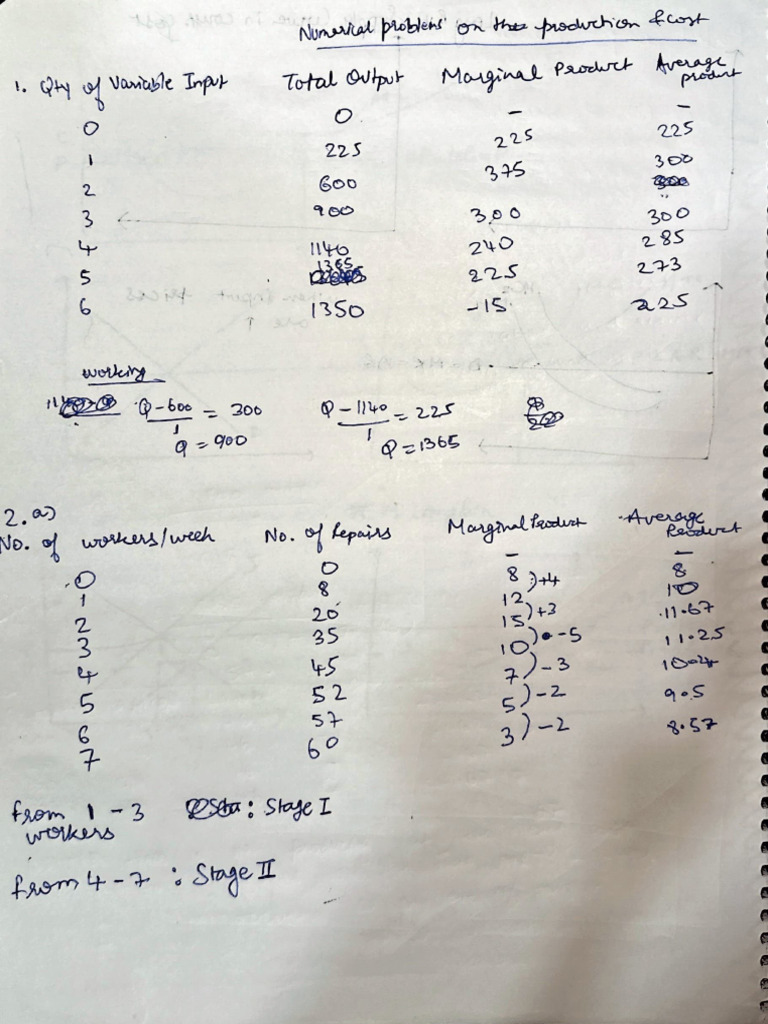 Numerical problems on the production & cost
1. Qty of Variable Input Total Output Marginal Product Average product
0 0 – –
1 225 225 225
2 600 375 300
3 900 300 300
4 1140 240 285
5 1365 225 273
6 1350 -15 225
working
Q-600 / 1 = 300 Q-1140 / 1 = 225
Q = 900 Q = 1365
2. a)
No. of workers/week No. of repairs Marginal Product Average Product
0 0 – –
1 8 8 8
2 20 12 )+4 10
3 35 15 )+3 11.67
4 45 10 ) -5 11.25
5 52 7 ) -3 10.4
6 57 5 ) -2 9.5
7 60 3 ) -2 8.57
from 1 - 3 : Stage I
workers
from 4 - 7 : Stage II